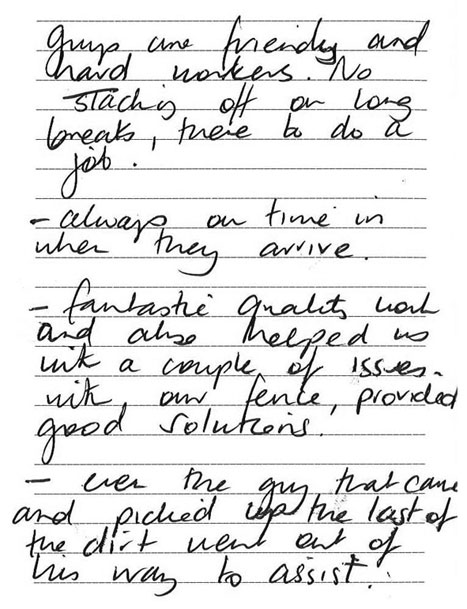 guys are friendly and
hard workers. No
slacking off or long
breaks, there to do a
job.
- always on time in
when they arrive.
- fantastic quality work
and also helped us
with a couple of issues.
with, our fence, provided
good solutions.
- even the guy that came
and picked up the last of
the dirt went out of
his way to assist.